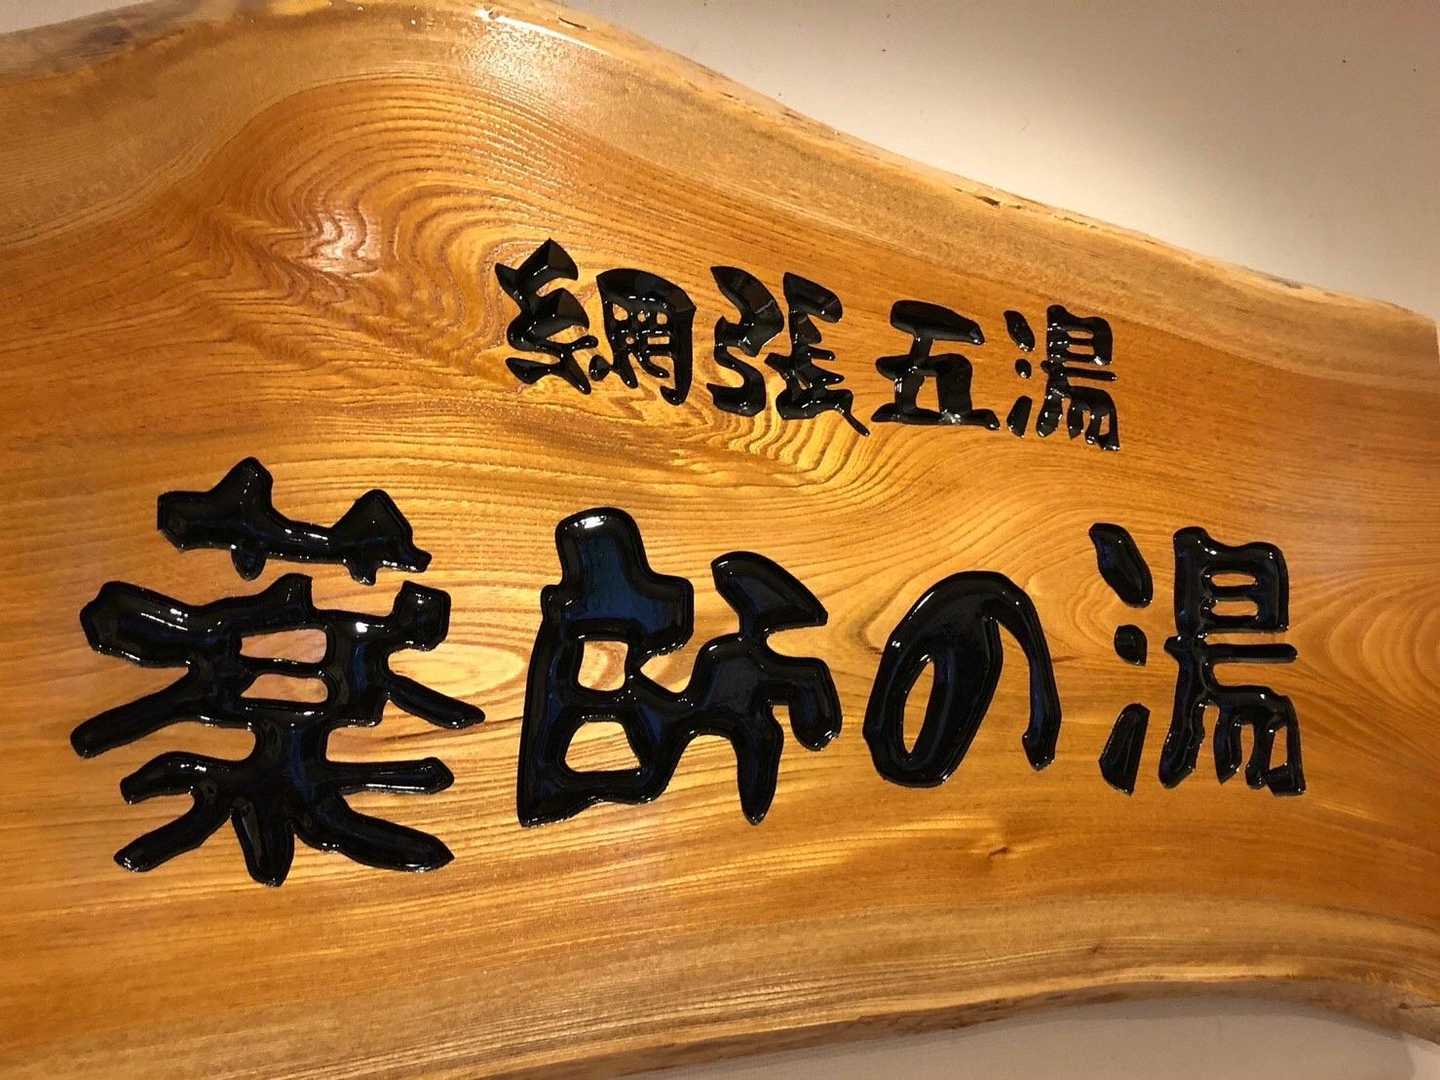 網張五湯
薬師の湯